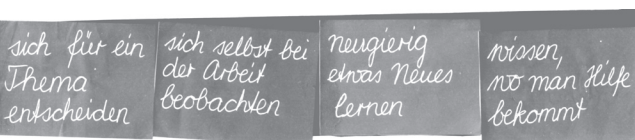 sich für ein
Thema
entscheiden
sich selbst bei
der Arbeit
beobachten
neugierig
etwas Neues
lernen
wissen,
wo man Hilfe
bekommt